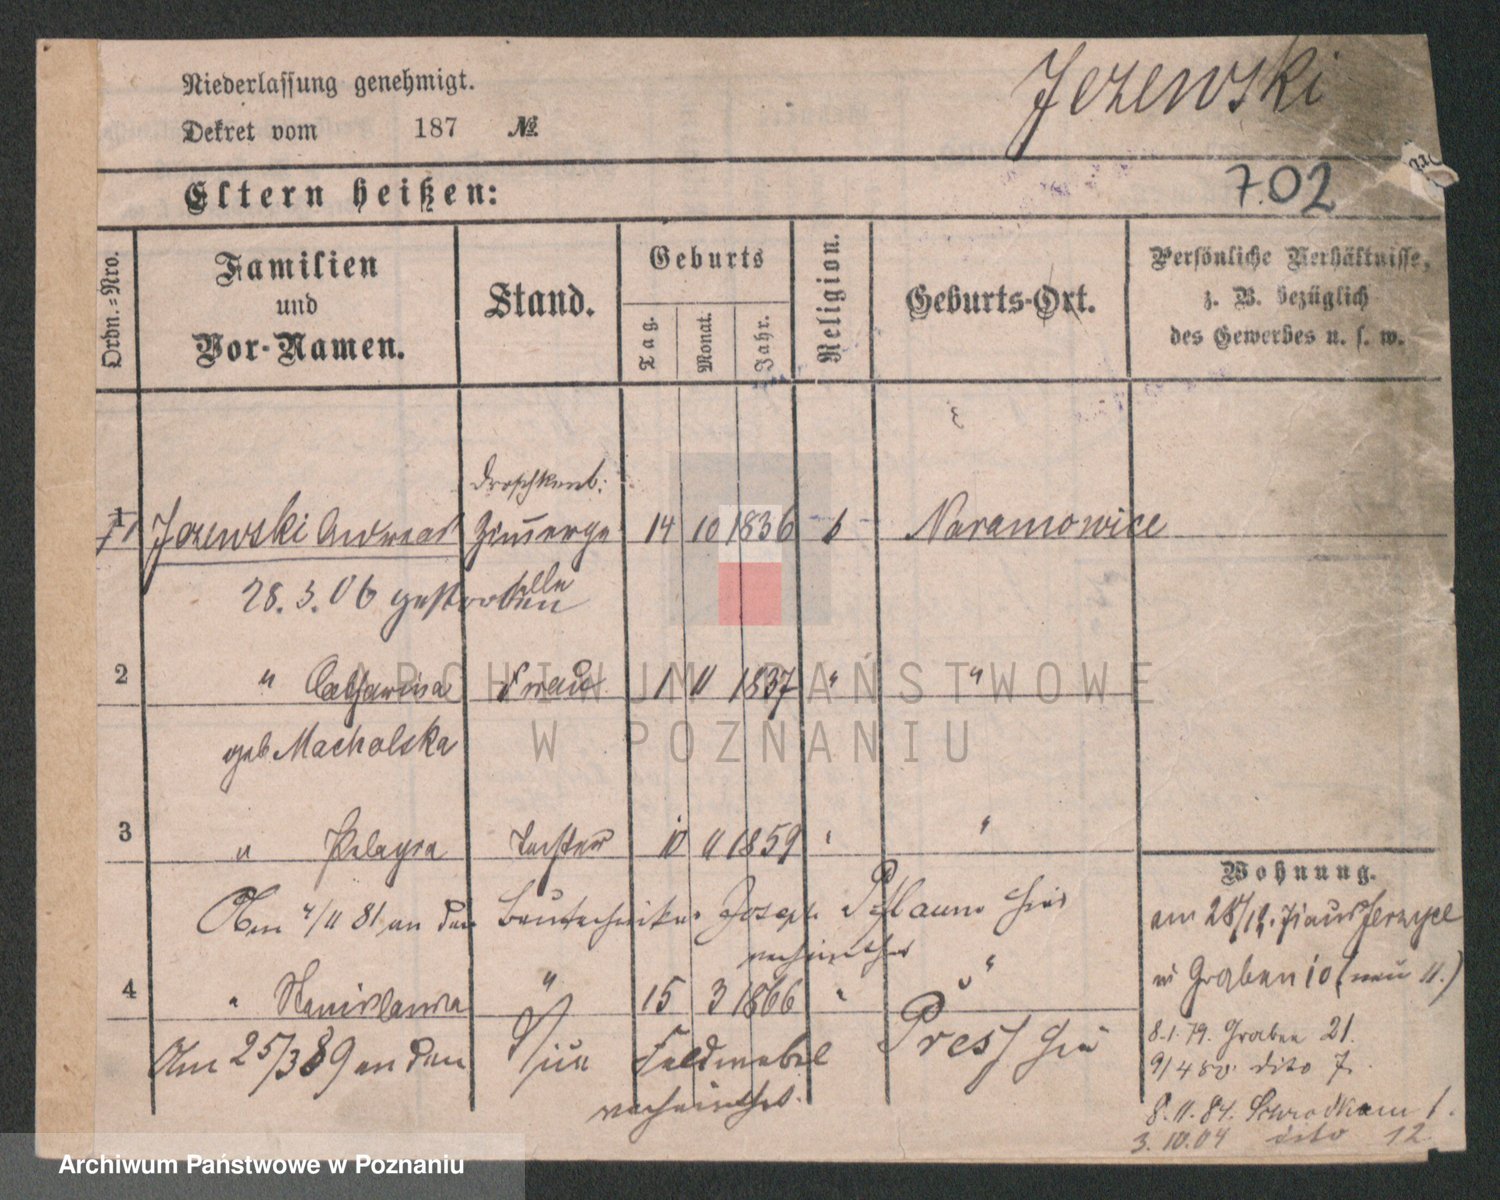 Niederlassung genehmigt.
Jezewski
Dekret vom 187 №
7.02
Eltern heißen:
Ordn.=Nro.
Familien und Vor-Namen.
Stand.
Geburts
Tag.
Monat.
Jahr.
Religion.
Geburts-Ort.
Persönliche Verhältnisse, z. B. bezüglich des Gewerbes u. s. w.
Droschkenb:
1 Jezewski Andreas 14 10 1836 Naramowice
28. 3. 06 gestorben
2 " Catharina Frau 1 11 1837 " "
geb Macholska
3 " Pelagia Tochter 10 11 1859 " "
Am 4/11 81 an den Bautechniker Joseph Pflaum hier
verheirathet
4 " Stanislawa " 15 3 1866 " "
Am 25/3 89 an den Feldwebel hier
verheirathet.
Wohnung.
am 28/12. 71 aus Jerzyce
Graben 10 (neu 11.)
8.1.79. Graben 21.
9/4 80. dito 7.
8.11.84. Schrodkam 1.
3.10.04 dito 12
ARCHIWUM PAŃSTWOWE
W POZNANIU
Archiwum Państwowe w Poznaniu